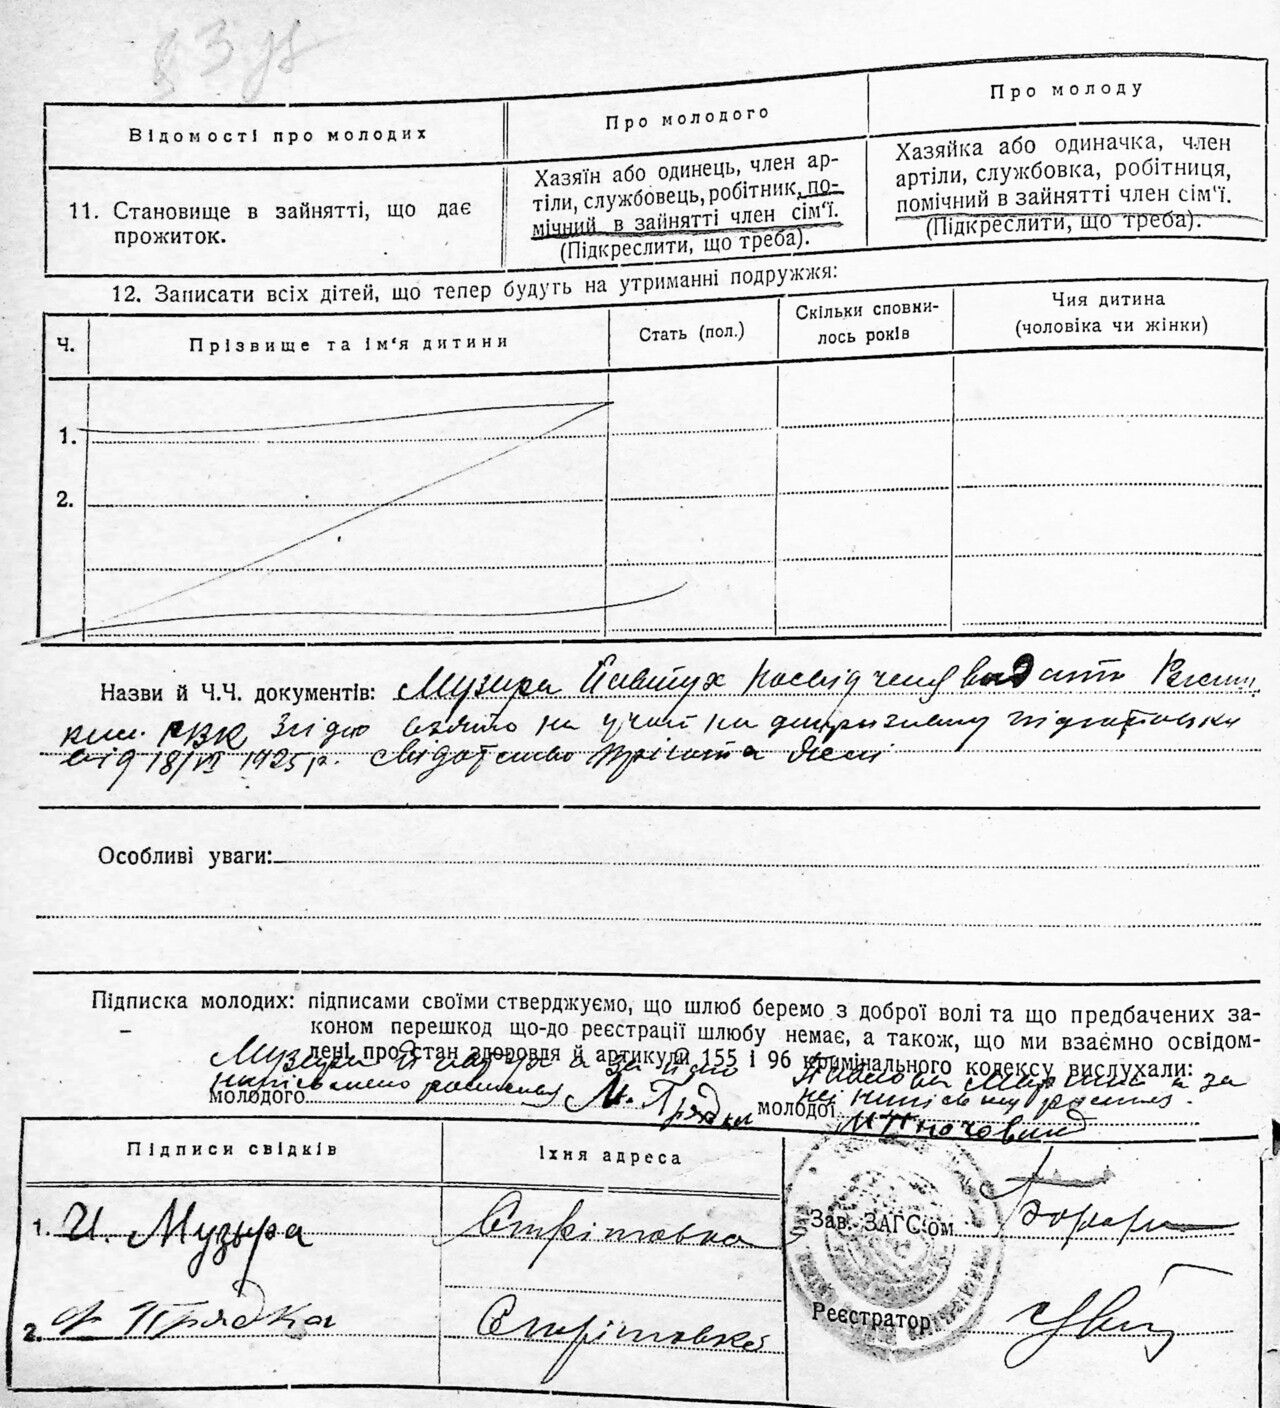 Відомості про молодих
Про молодого
Про молоду
11. Становище в зайнятті, що дає
прожиток.
Хазяїн або одинець, член ар-
тіли, службовець, робітник, по-
мічний в зайнятті член сім'ї.
(Підкреслити, що треба).
Хазяйка або одиначка, член
артіли, службовка, робітниця,
помічний в зайнятті член сім'ї.
(Підкреслити, що треба).
12. Записати всіх дітей, що тепер будуть на утриманні подружжя:
Ч.
Прізвище та ім'я дитини
Стать (пол.)
Скільки сповни-
лось років
Чия дитина
(чоловіка чи жінки)
1.
2.
Назви й Ч.Ч. документів: Музира Павтух
РВК на
від 18/VII 1925 р.
Особливі уваги:
Підписка молодих: підписами своїми стверджуємо, що шлюб беремо з доброї волі та що предбачених за-
коном перешкод що-до реєстрації шлюбу немає, а також, що ми взаємно освідом-
лені про стан здоровля й артикули 155 і 96 кримінального кодексу вислухали:
Музира а за
молодого М. Прядка
а за
молодої
Підписи свідків
Їхня адреса
1. И. Музыра
Стрітовка
2. Прядка
Стрітовка
Зав. ЗАГС'ом
Реєстратор